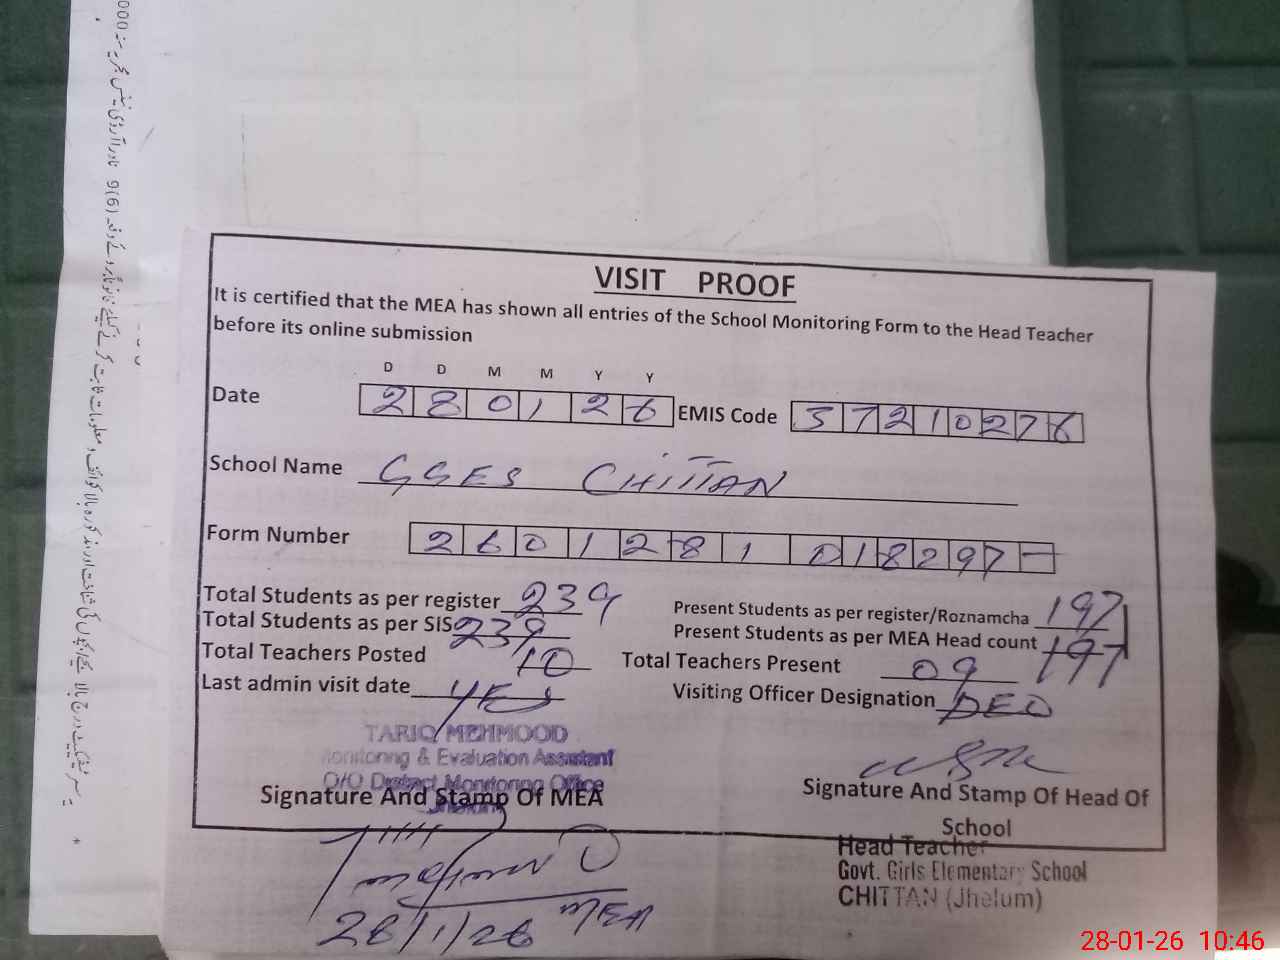 VISIT PROOF
It is certified that the MEA has shown all entries of the School Monitoring Form to the Head Teacher
before its online submission
D D M M Y Y
Date 28 01 26 EMIS Code 37210276
School Name GGES CHITTAN
Form Number 2601281 018297-
Total Students as per register 239 Present Students as per register/Roznamcha 197
Total Students as per SIS 239 Present Students as per MEA Head count 197
Total Teachers Posted 10 Total Teachers Present 09
Last admin visit date YES Visiting Officer Designation DEO
TARIQ MEHMOOD
Monitoring & Evaluation Assistant
O/O District Monitoring Office
Jhelum
Signature And Stamp Of MEA
Signature And Stamp Of Head Of
School
Head Teacher
Govt. Girls Elementary School
CHITTAN (Jhelum)
MEA
28/1/26
28-01-26 10:46